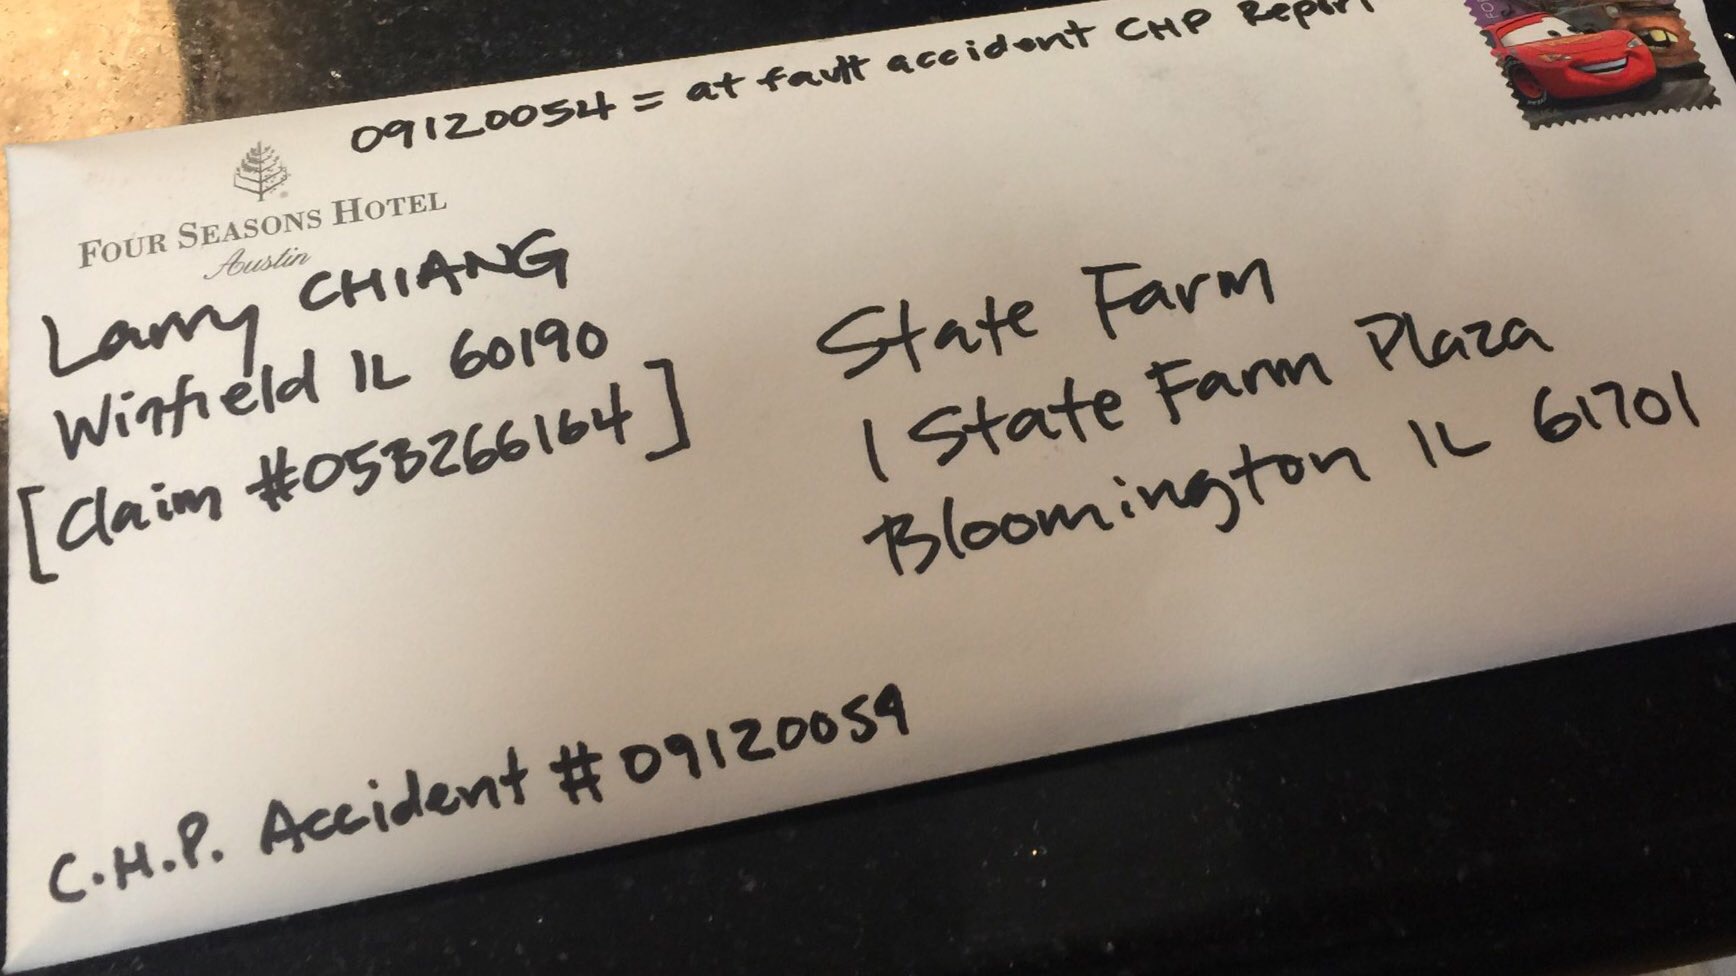 09120054 = at fault accident CHP Report
FOUR SEASONS HOTEL
Austin
Larry CHIANG
Winfield IL 60190
[Claim #05B266164]
State Farm
1 State Farm Plaza
Bloomington IL 61701
C.H.P. Accident #09120054